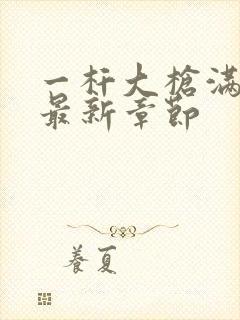 一杆大槍滿
最新章節
養夏